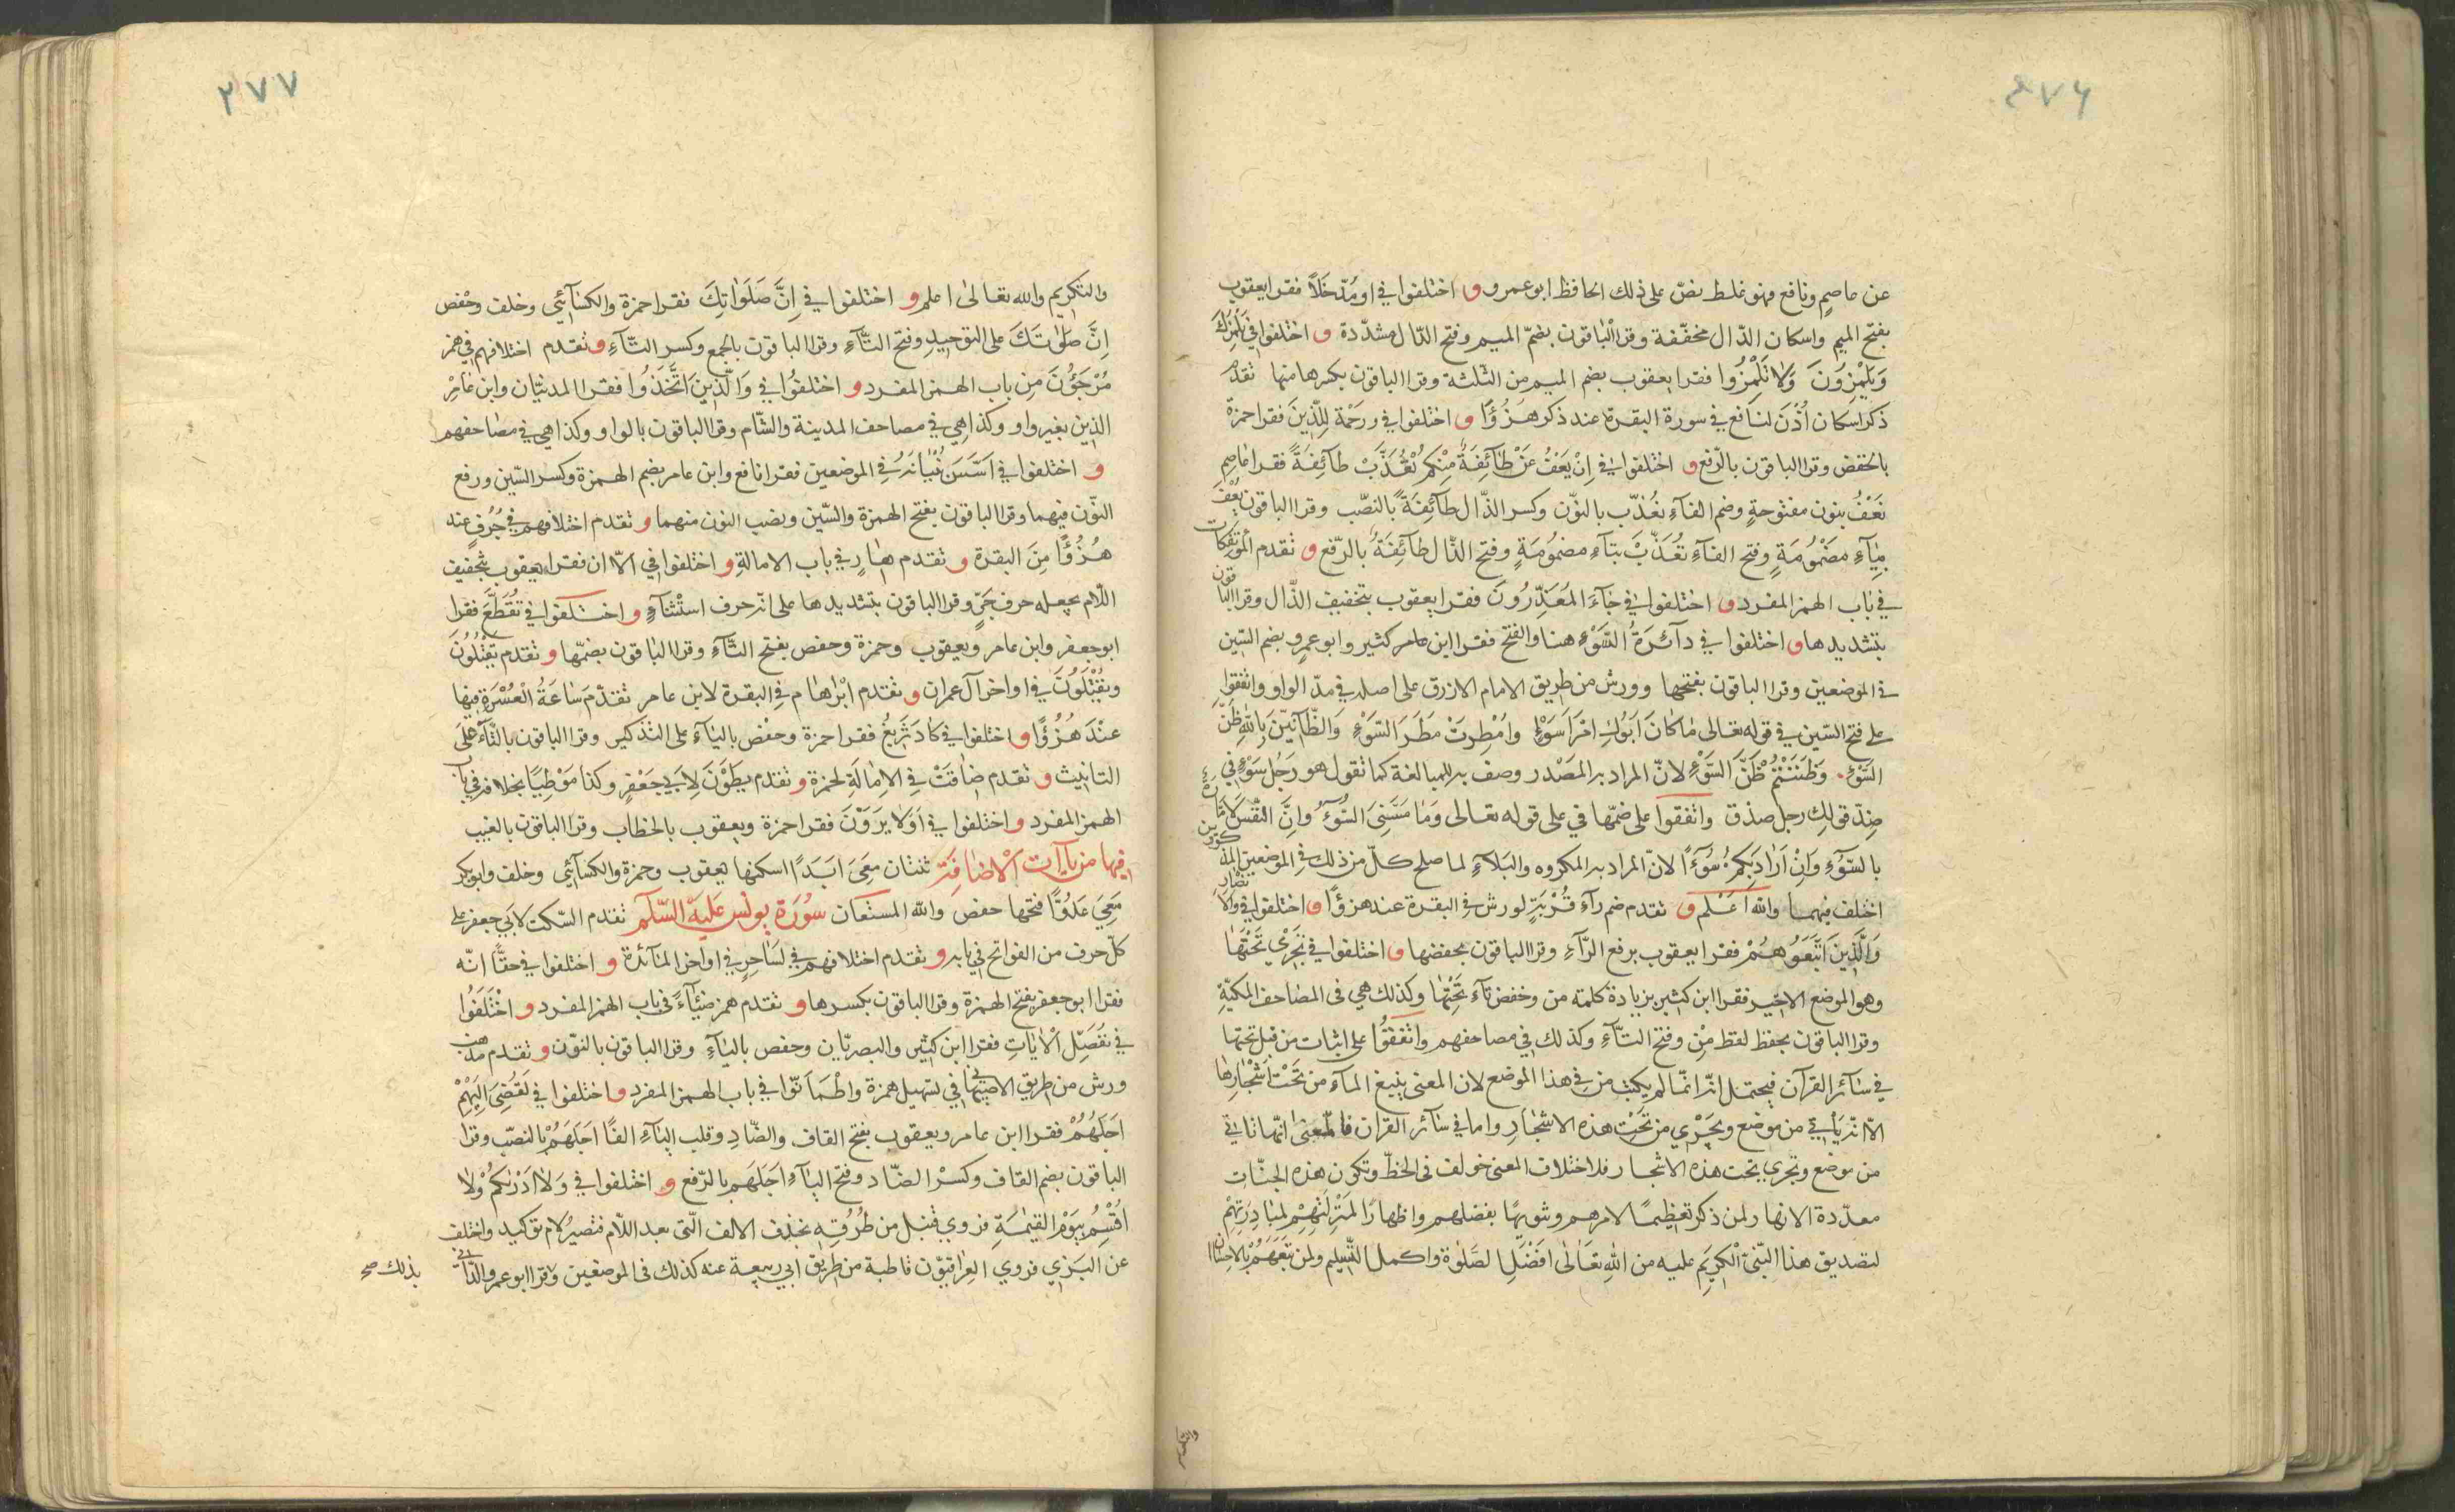 ٢٧٦
عن عاصمٍ ونافع فهو غلط نصّ على ذلك الحافظ ابو عمرو و اختلفوا في او مُدّخَلاً فقرا يعقوب
بفتح الميم واسكان الدّال مخفّفة وقرا الباقون بضمّ الميم وفتح الدّال مشدّدة و اختلفوا في يَلْمِزُكَ
وَيَلْمِزُونَ وَلا تَلْمِزُوا فقرا يعقوب بضم الميم من الثلثة وقرا الباقون بكسرها منها تقدّم
ذكر اسكان اُذْنَ لنافع في سورة البقرة عند ذكر هُزُؤًا و اختلفوا في ورَحْمة لِلّذِينَ فقرا حمزة
بالخفض وقرا الباقون بالرّفع و اختلفوا في اِنْ يَعْفُ عَنْ طَآئِفَةٍ مِنْكم تُعَذَّبْ طَآئِفَةً فقرا عاصم
نَعْفُ بنون مفتوحةٍ وضم الفآءِ نُعَذّب بالنوّن وكسر الذّال طآئِفَةً بالنصّب وقرا الباقون يُعْفَ
بِيآءٍ مضْمُومَةٍ وفتح الفآءِ تُعَذَّبْ بتآءٍ مضمُومَةٍ وفتح الذّال طآئِفَةٌ بالرّفع و تقدم المُؤتَفِكات
في باب الهمز المفرد و اختلفوا في جَآءَ المُعَذِّرُونَ فقرا يعقوب بتخفيف الذّال وقرا الباقون
بتشديدها و اختلفوا في دآئرَةُ السَّوْءِ هنا والفتح فقرا ابن عامر كثير وابو عمرٍو بضم السّين
في الموضعين وقرا الباقون بفتحها وورش من طريق الامام الازرق على اصله في مدّ الواو واتفقوا
على فتح السّين في قوله تعالى مَا كانَ اَبُوكِ امْرَاَ سَوْءٍ واُمْطِرتْ مَطَرَ السّوْءِ وَالظّآنِّينَ بِاللّهِ ظَنَّ
السّوْءِ وَظَنَنْتُمْ ظَنَّ السَّوْءِ لانّ المراد به المصْدر وصف به للمبالغة كما تقول هو رَجُل سَوْءٍ في
ضِدّ قولك رجل صدْق واتفقوا على ضمّها في على قوله تعالى وَمَا مَسَّنِيَ السُّوْٓءُ وَاِنَّ النّفْسَ لَامّارَةٌ
بالسُّوٓءِ وَاِنْ اَرَادَ بِكُمْ سُوٓءًا لانّ المراد به المكروه والبَلآءِ لما صلح كلّ من ذلك في الموضعين المذكورين
اختلف فيهما واللّه اعْلم و تقدم ضم رآءِ قُرْبَةٍ لورش في البقرة عند هزؤًا و اختلفوا في والانصَار
وَالّذِينَ اتّبَعُوهُمْ فقرا يعقوب برفع الرّآءِ وقرا الباقون بخفضها و اختلفوا في تَجْرِي تَحْتَهَا
وهو الموضع الاخير فقرا ابن كثير بزيادة كلمة من وخفض تآءِ تَحْتِها وكذلك هي في المصَاحف المكيّةِ
وقرا الباقون بحفظ لفظ مِنْ وفتح التّآءِ وكذلك في مصاحفهم واتفقُوا على اثبات من قبل تحتها
في سآئر القرآن فيحتمل انّه انّما لم يكتب من في هذا الموضع لان المعنى ينبغ المآء من تَحْت اَشْجَارِهَا
الّا انّه يَأتي من موضع ويَجْري من تَحْت هذه الاشجَار واما في سآئر القرآن فالمَعْنى انّها تاتي
من موضع وتجري تحت هذه الاشجار فلاختلاف المعنى خولف في الخطّ وتكون هذه الجنّات
معدّدة الانهار لمن ذكر تعظِيمًا لامرهم وتنويهًا بفضلهم واظهارًا لمنْزِلَتِهِمْ لمبَادِرَتِهِمْ
لتصديق هذا النّبيّ الْكرِيم عليه من اللّهِ تعَالى افْضَل الصَلوة واكمل التّسْليم ولمن تَبِعَهُمْ بالاحْسَان
والتكريم
٢٧٧
والتكريم والله تعالى اعلم و اختلفوا في اِنَّ صَلَواتِكَ فقرا حمزة والكسَآئي وخلف وحفص
اِنَّ صَلٰوتَكَ على التوحِيدِ وفتح التّآءِ وقرا الباقون بالجمع وكسر التّآءِ و تقدم اختلافهم في همز
مُرْجَؤُنَ مِن باب الهمز المفرد و اختلفوُا في وَالّذِينَ اتَّخَذُوا فقرا المدنيّان وابن عَامِرْ
الذين بغير واو وكذا هِي في مصاحف المدينة والشّام وقرا الباقون بالواو وكذا هي في مصَاحفهم
و اختلفوا في اَسَّسَ بُنْيَانَهُ في الموضعين فقرا نافع وابن عامر بضم الهمزة وكسر السّين ورفع
النّون فيهما وقرا الباقون بفتح الهمزة والسّين ونصب النون منهما و تقدم اختلافهم في جُرُفٍ عند
هُزُؤًا مِنَ البقرة و تقدم هَارٍ في باب الامالةِ و اختلفوا في الّا ان فقرا يعقوب بتخفيف
اللّام بجعله حرف جَرٍّ وقرا الباقون بتشديدها على انّه حرف استثنآءٍ و اختلفوا في تُقَطّعَ فقرا
ابو جعفر وابن عامر ويعقوب وحمزة وحفص بفتح التّآءِ وقرا الباقون بضمّها و تقدم يَقْتُلُونَ
ويُقْتَلُونَ في اواخر آل عمران و تقدم ابْرَاهَام في البقرة لابن عامر تقدّم سَاعَةُ الْعُسْرَةِ فيها
عنْدَ هُزُؤًا و اختلفوا في كَادَ يَزِيغُ فقرا حمزة وحفْص باليَآءِ على التذكير وقرا الباقون بالتّآءِ على
التانيث و تقدم ضاقَتْ في الاِمَالَةِ لحمزة و تقدم يطَؤُنَ لِاَبي جَعْفرٍ وكذا مَوْطِيًا بخلافه في باب
الهمز المفرد و اختلفوا في اَوَلا يَرَوْنَ فقرا حمزة ويعقوب بالخطاب وقرا الباقون بالغيب
فيها من يآآت الْاضافة ثنتان مَعِيَ اَبَدًا اسكنها يعقوب وحمزة والكسآئي وخلف وابو بكر
مَعِيَ عَدُوًّا فتحها حفص واللّه المستعَان سُورَة يونس عَلَيْه السّلَام تقدم السّكت لابي جعفر على
كلّ حرف من الفواتح في بابه و تقدم اختلافهم في لسَاحِرٍ في اواخر المآئدة و اختلفوا في حقّا انّه
فقرا ابو جعفر بفتح الهمزة وقرا الباقون بكسرها و تقدم همز ضِئَآءً في باب الهمز المفرد و اخْتَلَفُوا
في نُفَصّل الْايَاتِ فقرا ابن كثير والبصريّان وحفص باليآءِ وقرا الباقون بالنوّن و تقدم مذهب
ورش من طريق الاصبهاني في تسهيل همزة واطْمَاَنّوا في باب الهمز المفرد و اختلفوا في لَقُضِيَ اِلَيْهِمْ
اَجَلُهُمْ فقرا ابن عامر ويعقوب بفتح القاف والضّادِ وقلب اليآءِ الفًا اَجَلَهُمْ بالنصّب وقرا
الباقون بضم القاف وكسْر الضّاد وفتح اليآءِ اَجَلُهُم بالرّفع و اختلفوا في وَلَا اَدْرٰىكُمْ وْلَا
اُقْسِمُ بِيَوْمِ القِيٰمَةِ فروي قنبل من طُرُقِهِ بحَذف الالف الّتي بعد اللّام فتصيرُ لام توكيد واختلف
عن البَزي فروي العِراقيّون قاطبة من طريق ابي ربيعة عنه كذلك في الموضعين وقرا ابو عمرو الدّاني
بذلك صح